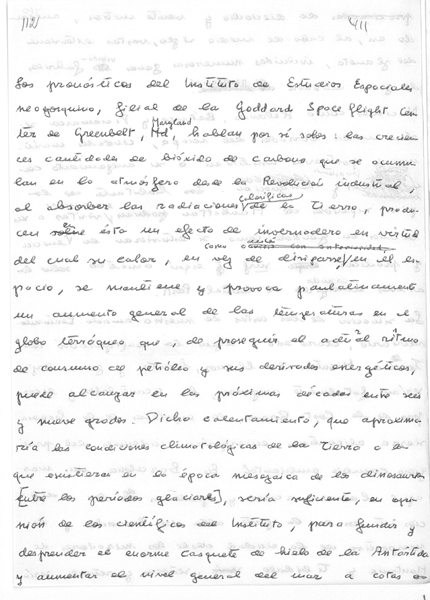 112 411
Los pronósticos del Instituto de Estudios Espaciales
neoyorquino, filial de la Goddard Space flight Cen
ter de Greenbelt, Maryland, hablan por sí solos: las crecien
tes cantidades de bióxido de carbono que se acumu
lan en la atmósfera desde la Revolución industrial,
al absorber las radiaciones caloríficas de la Tierra, produ
cen en ésta un efecto de invernadero en virtud
del cual su calor, en vez de disiparse como antes en el es
pacio, se mantiene y provoca paulatinamente
un aumento general de las temperaturas en el
globo terráqueo que, de proseguir el actual ritmo
de consumo de petróleo y sus derivados energéticos,
puede alcanzar en las próximas décadas entre seis
y nueve grados. Dicho calentamiento, que aproxima
ría las condiciones climatológicas de la Tierra a las
que existieran en la época mesozoica de los dinosaurios
[entre los períodos glaciares], sería suficiente, en opi
nión de los científicos del Instituto, para fundir y
desprender el enorme casquete de hielo de la Antártida
y aumentar el nivel general del mar a cotas